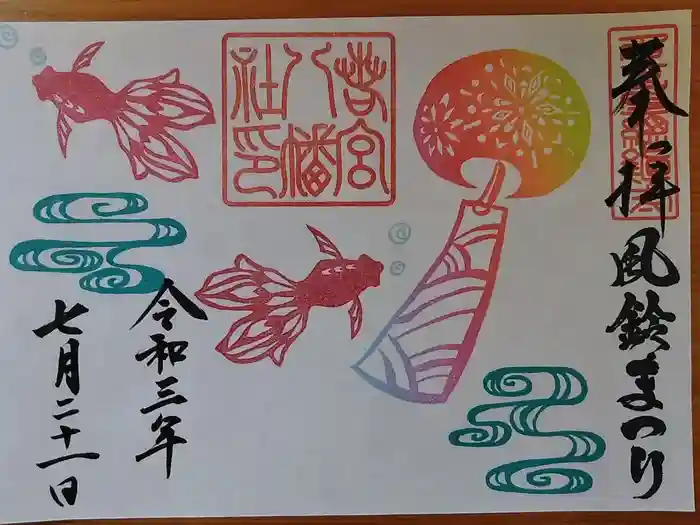 奉拝
風鈴まつり
若宮
八幡
社印
令和三年
七月二十一日